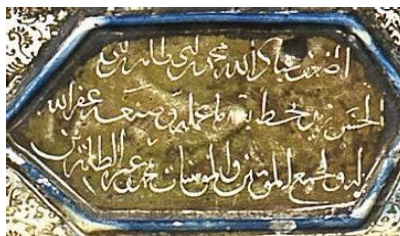 اضعف عباد الله محمد بن ابی طاهر بن ابی
الحسن زین بخطه بعد ما عمله و صنعه غفر الله
له و لجمیع المؤمنین و المؤمنات بمحمد و عترته الطاهرین